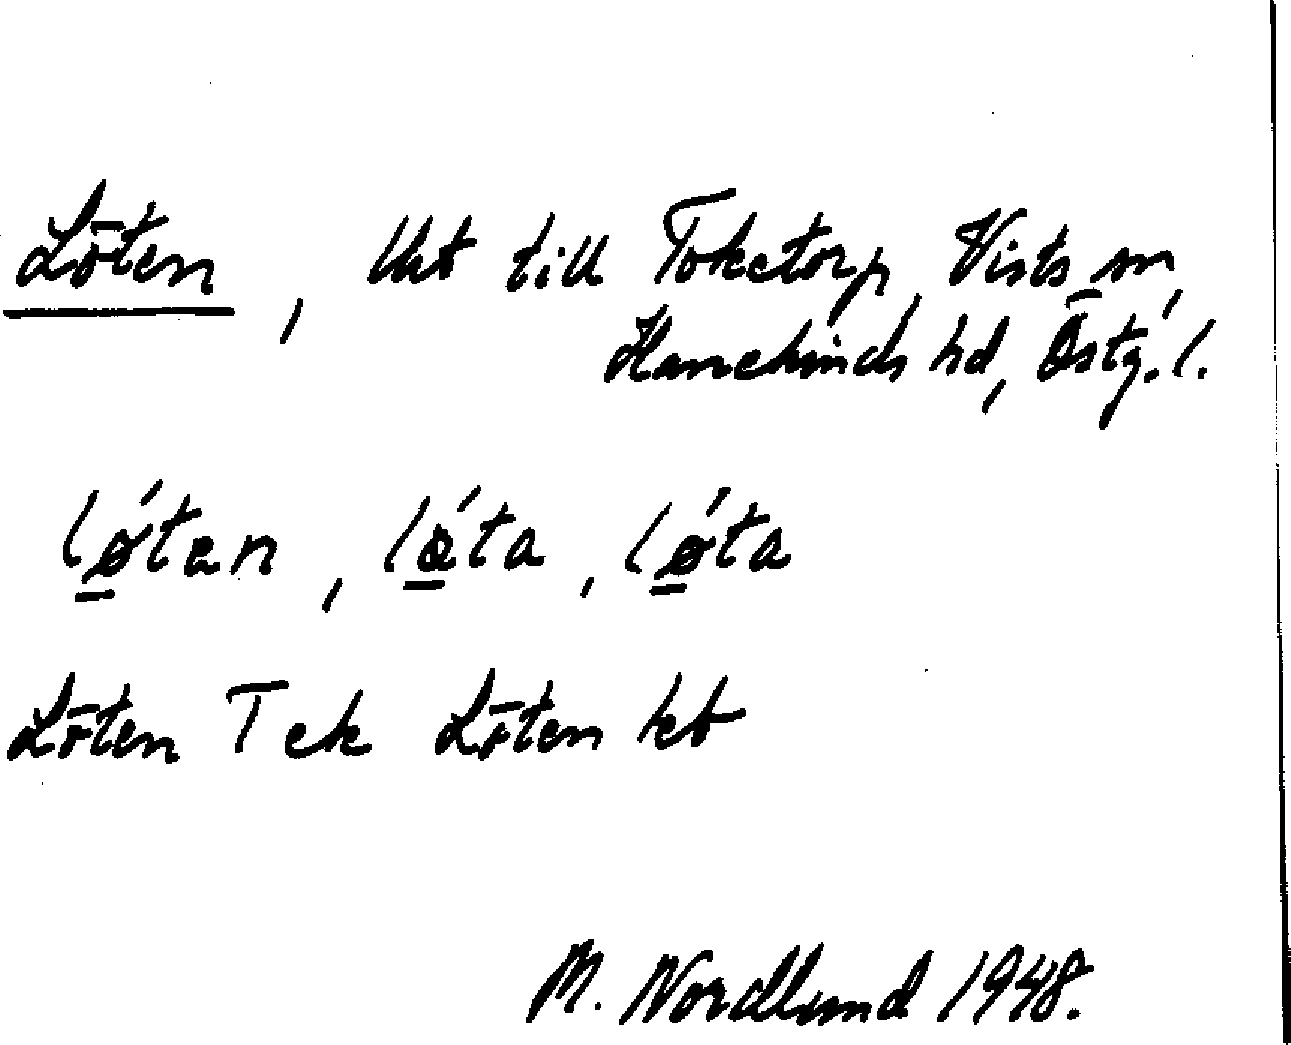 Löten, lht till Toketorp, Vists sn,
Hanekinds hd, Östg. l.
lǿ̠tan, lǿ̠ta, lǿ̠ta
Löten T ek Löten kb
M. Nordlund 1948.